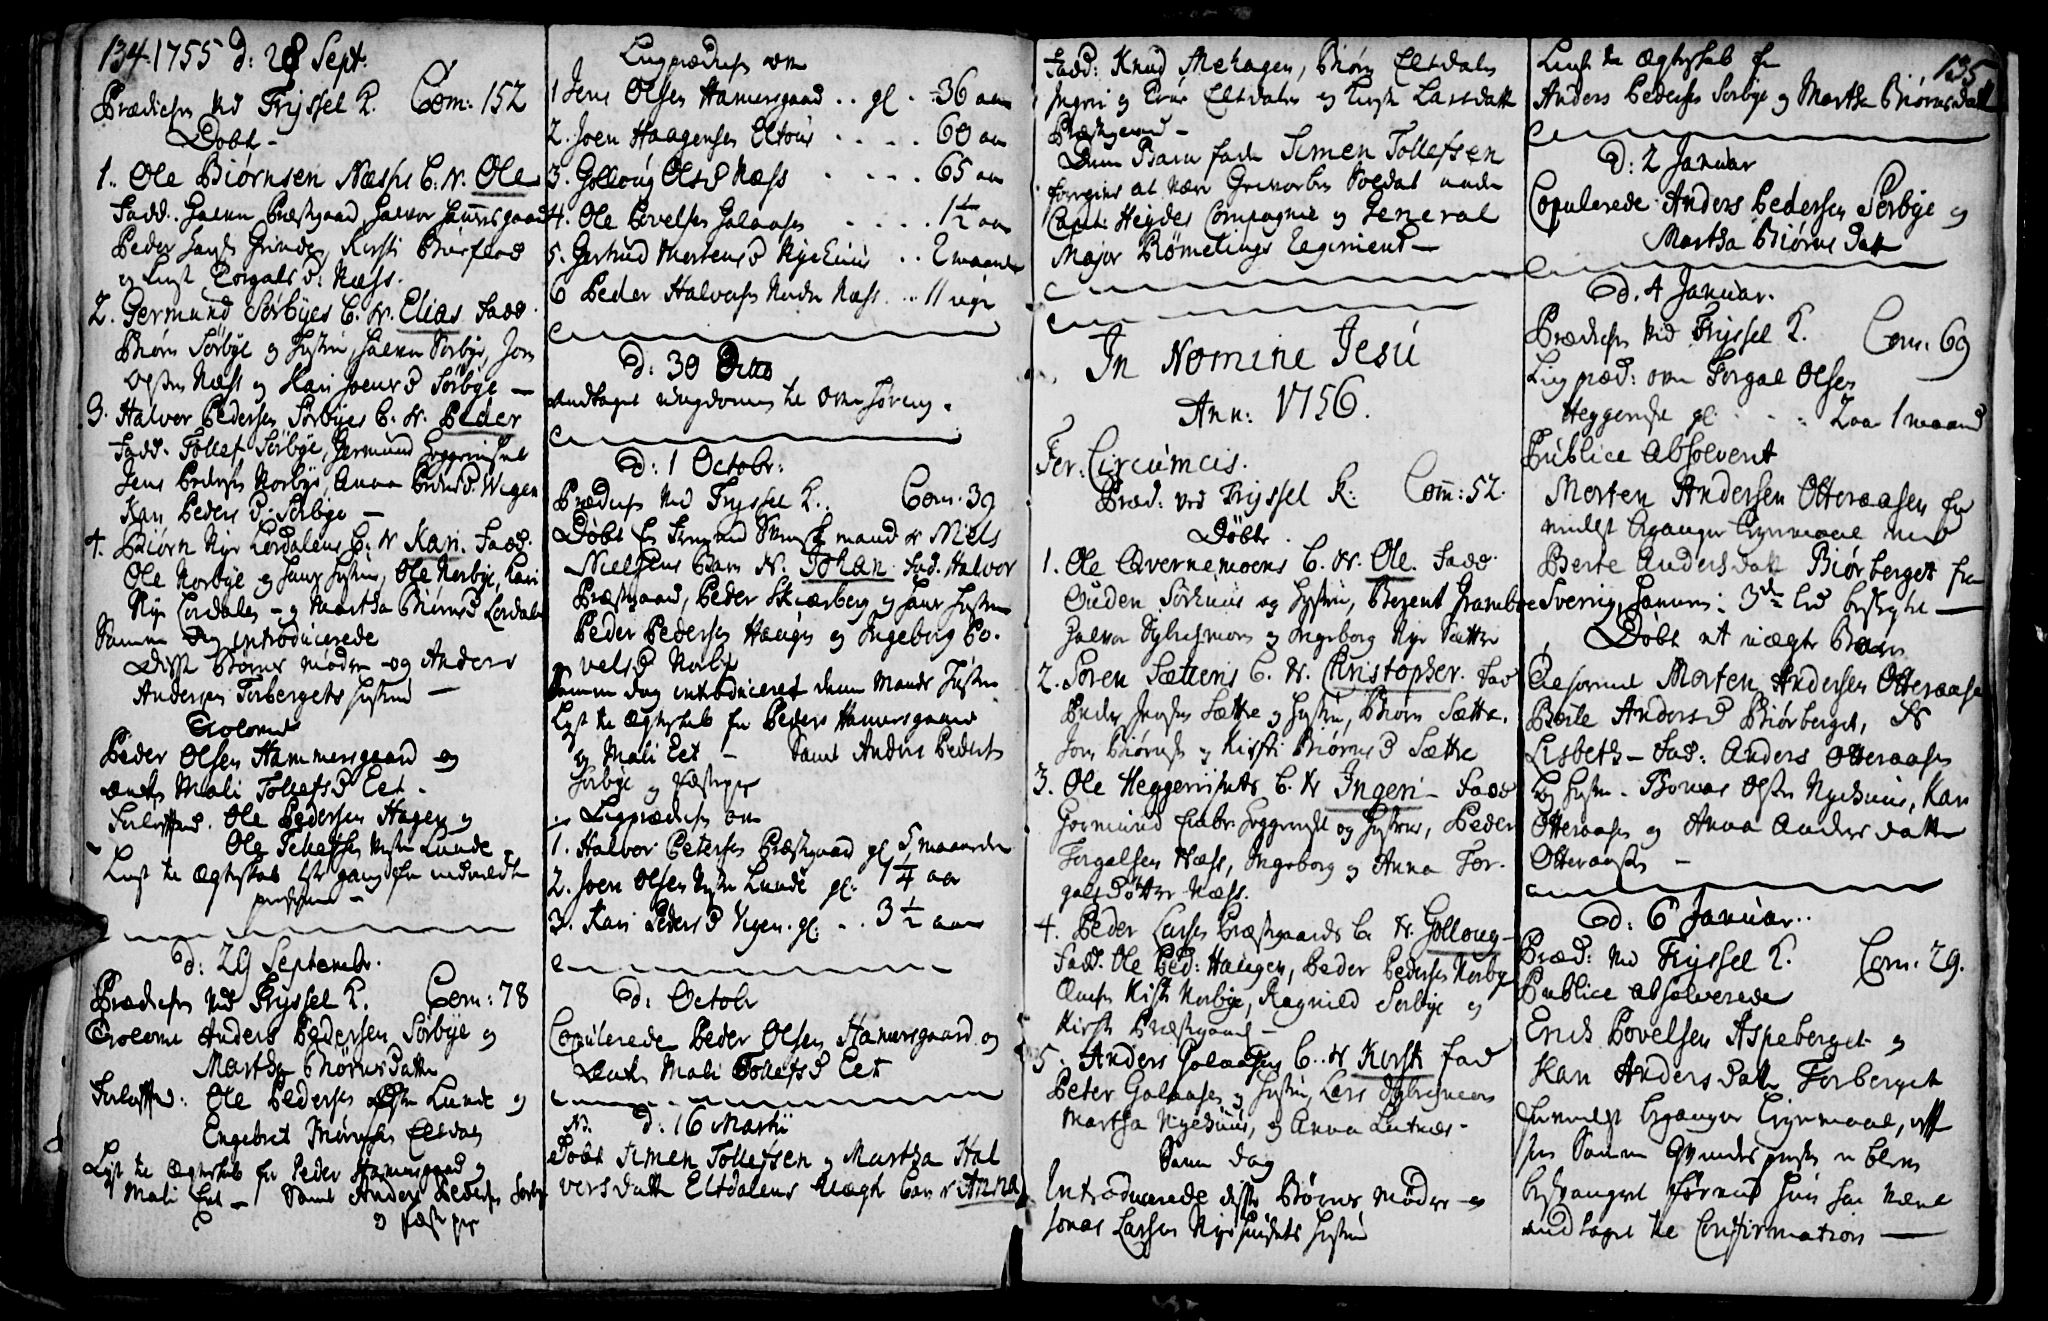 134. 1755 d: 28 Sept.
Prædiken ved Tryssel K. Com: 152
Døbt -
1. Ole Biørnsen Næshs B. N. Ole
Fadd. Halvor Præstgaard, Halvor Hammersgaard
Peder Grinden, Kersti Bursløb
og Torgals D. Næss.
2. Germund Sørbyes B. N. Elias. Fadd.
Biørn Sørbye og Hustru, Halvor Sørbye, Jon
Olsen Næss og Kari Joens D Sørbye -
3. Halvor Pedersen Sørbyes B. N. Peder
Fadd. Tollef Sørbye, Germund
Jens Pedersen Norbye, Anna Peders D. Wigen
Kari Peders D: Sørbye -
4. Biørn Nye Lørdalens B. N. Kari. Fadd.
Ole Norbye og hans Hustru, Ole Norbye, Kari
Nye Lørdalen - og Martha Biørns D Lørdalen
Samme Dag introducerede
Disse Børns mødre og Anders
Andersen Torbergets Hustru -
Trolovet
Peder Olsen Hammersgaard og
Enken Mali Tollefs D Eet.
Forlovere. Ole Pedersen Hagen og
Ole Lunde
Lyst til Ægteskab 1ste gang for indmeldte
personer -
d: 29 Septembr.
Prædiken ved Tryssel K. Com: 78
Trolovet Anders Pedersen Sørbye og
Martha Biørnsdatter
Forlovere: Ole Pedersen Lunde og
Engebret Eltdalen
Lyst til Ægteskab for Peder Hammersgaard og
Mali Eet - Samt Anders Pedersen Sørbye
og Fæste pige
Liigprædiken over
1 Jens Olsen Hamersgaard .. gl. 36 aar
2. Joen Haagensen Eltous .... 60 aar
3. Golloug Ols D Næss .... 65 aar
4. Ole Povelsen Galaasen .... 1½ aar
5. Gertrud Mortens D Nyehuus .. 2 maaneder
6 Peder Halvorsen Nedre Næss ... 11 uger
d: 30 Dito
andtaget ungdommen til overhøring.
d: 1 Octobr:
Prædiken ved Tryssel K. Com. 39
Døbt mand N Niels
Nielsens Barn N. Johan. Fad. Halvor
Præstgaard, Peder Skiærberg og hans Hustru
Peder Pedersen Haugen og Ingeborg Po-
vels D Norbye
Samme dag introduceret denne Mands Hustru
Lyst til Ægteskab for Peder Hamersgaard
og Mali Eet - Samt Anders Pedersen
Sørbye og Fæstepige
Liigprædiken over
1. Halvor Petersen Præstgaard gl 5 maaneder
2. Joen Olsen Lunde gl: 1¼ aar
3. Kari Peders D Vigen. gl: .. 3½ aar
d: Octobr
Copulerede Peder Olsen Hamersgaard og
Enken Mali Tollefs D Eet
NB. d: 16 Martii
Døbt Simen Tollefsen og Martha Hal
versdatter Eltdalens uægte Barn N Anna
Fadd: Knud Mehagen, Biørn Eltdalen
Ingri og Eltdalen og Larsdatter
Præstgaard -
Denne Barnefader Simen Tollefsen
foregives at være Geworben Soldat under
Capit: Heydes Compagnie og General
Major Rømelings Regiment -
In Nomine Jesu
Ann: 1756.
Fer. Circumcis.
Præd: ved Tryssel K: Com: 52.
Døbt
1. Ole Qvernemoens B. N. Ole. Fadd.
Ouden Sørhuus og Hustru, Berent Grambo
Halvor og Ingeborg Nye Sætter
2. Søren Sætters B. N. Christopher. Fad
Peder Jensen Sættre og Hustru, Biørn Sættre.
Jon Biørnsen og Kirsti Biørns D Sættre
3. Ole Heggeriisets B. N Ingeri - Fadd
Gormund og Hustrue, Peder
Torgalsen Næss, Ingeborg og Anna Tor-
gals Døtter Næss.
4. Peder Larsen Præstgaards B. N. Golloug -
Fadd. Ole Ped: Haugen, Peder Pedersen Norbye
Norbye, Ragnild Sørbye og
Kirsti Præstgaard -
5. Anders Galaasens B. N Kersti Fad
Peter Galaasen og Hustru, Lars
Martha Nyehuus, og Anna Lutnæs -
Samme Dag
Introducerede disse Børns mødre og
Jonas Larsen Hustru
135
Lyst til Ægteskab for
Anders Pedersen Sørbye og Martha Biørnsdatter
d: 2 Januar
Copulerede Anders Pedersen Sørbye og
Martha Biørns datter
d. 4 Januar.
Prædiken ved Tryssel K. Com. 69
Liigpræd: over Torgal Olsen
Heggeriiset gl: .... 2 aar 1 maaned
Publice absolveret
Morten Andersen Otteraasen for
sidst begangne Leyermaal med
Berte Andersdatter Biørberget fra
Sverrig, hannem: 3die
Døbt et uægte Barn
Morten Andersen Otteraasen
Berte Anders D Biørberget, N
Lisbeth - Fad: Anders Otteraasen
og Hustru - Tomas Olsen Nyehuus, Kari
Otteraasen og Anna Andersdatter
Otteraasen -
d: 6 Januar.
Præd: ved Tryssel K. Com. 29.
Publice absolverede
Erich Povelsen Aspeberget og
Kari Andersdatter Torberget
formedelst begangne Leyermaal,
samme Qvindes person er bleven
besvangret førend hun har været
andtaget til Confirmation -